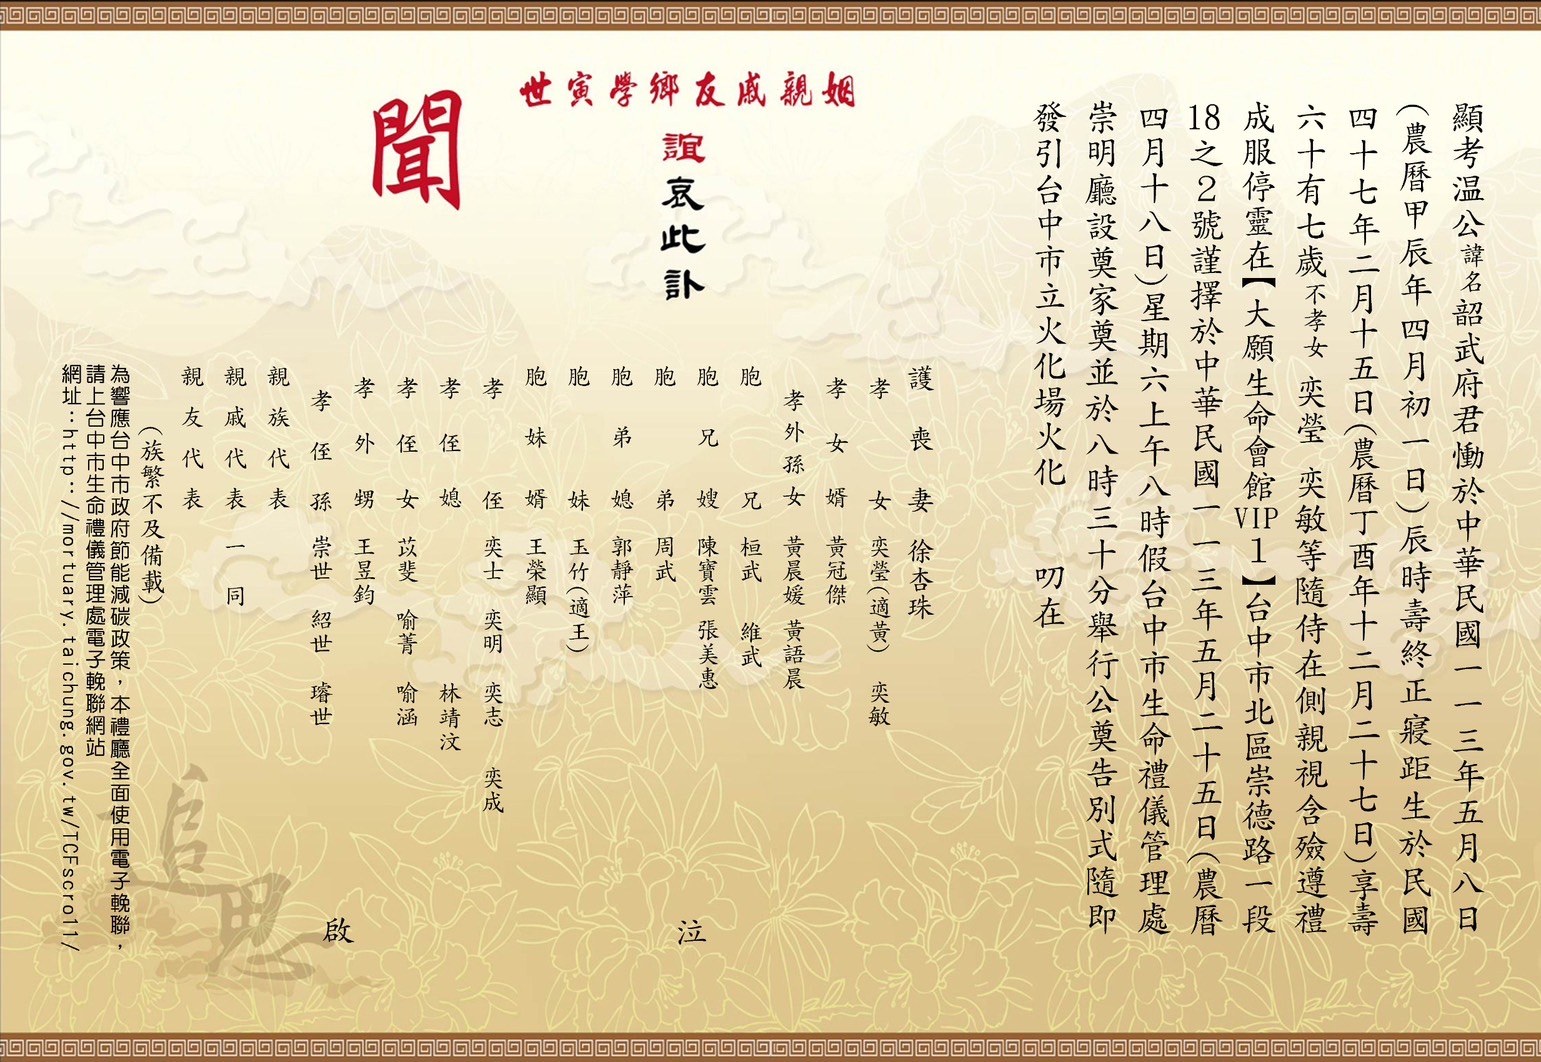 顯考温公諱名韶武府君慟於中華民國一一三年五月八日
(農曆甲辰年四月初一日)辰時壽終正寢距生於民國
四十七年二月十五日(農曆丁酉年十二月二十七日)享壽
六十有七歲不孝女 奕瑩 奕敏等隨侍在側親視含殮遵禮
成服停靈在【大願生命會館VIP1】台中市北區崇德路一段
18之2號謹擇於中華民國一一三年五月二十五日(農曆
四月十八日)星期六上午八時假台中市生命禮儀管理處
崇明廳設奠家奠並於八時三十分舉行公奠告別式隨即
發引台中市立火化場火化 叨在
姻親戚友鄉學寅世
誼哀此訃
聞
護喪妻 徐杏珠
孝女 奕瑩(適黃) 奕敏
孝女婿 黃冠傑
孝外孫女 黃晨媛 黃語晨
胞兄 桓武 維武
胞兄嫂 陳寶雲 張美惠
胞弟 周武
胞弟媳 郭靜萍
胞妹 玉竹(適王)
胞妹婿 王榮顯
孝侄 奕士 奕明 奕志 奕成
孝侄媳 林靖汶
孝侄女 苡斐 喻菁 喻涵
孝外甥 王昱鈞
孝侄孫 崇世 紹世 璿世
親族代表
親戚代表 一同
親友代表
泣
啟
(族繁不及備載)
為響應台中市政府節能減碳政策，本禮廳全面使用電子輓聯，
請上台中市生命禮儀管理處電子輓聯網站
網址：http://mortuary.taichung.gov.tw/TCFscroll/
追思